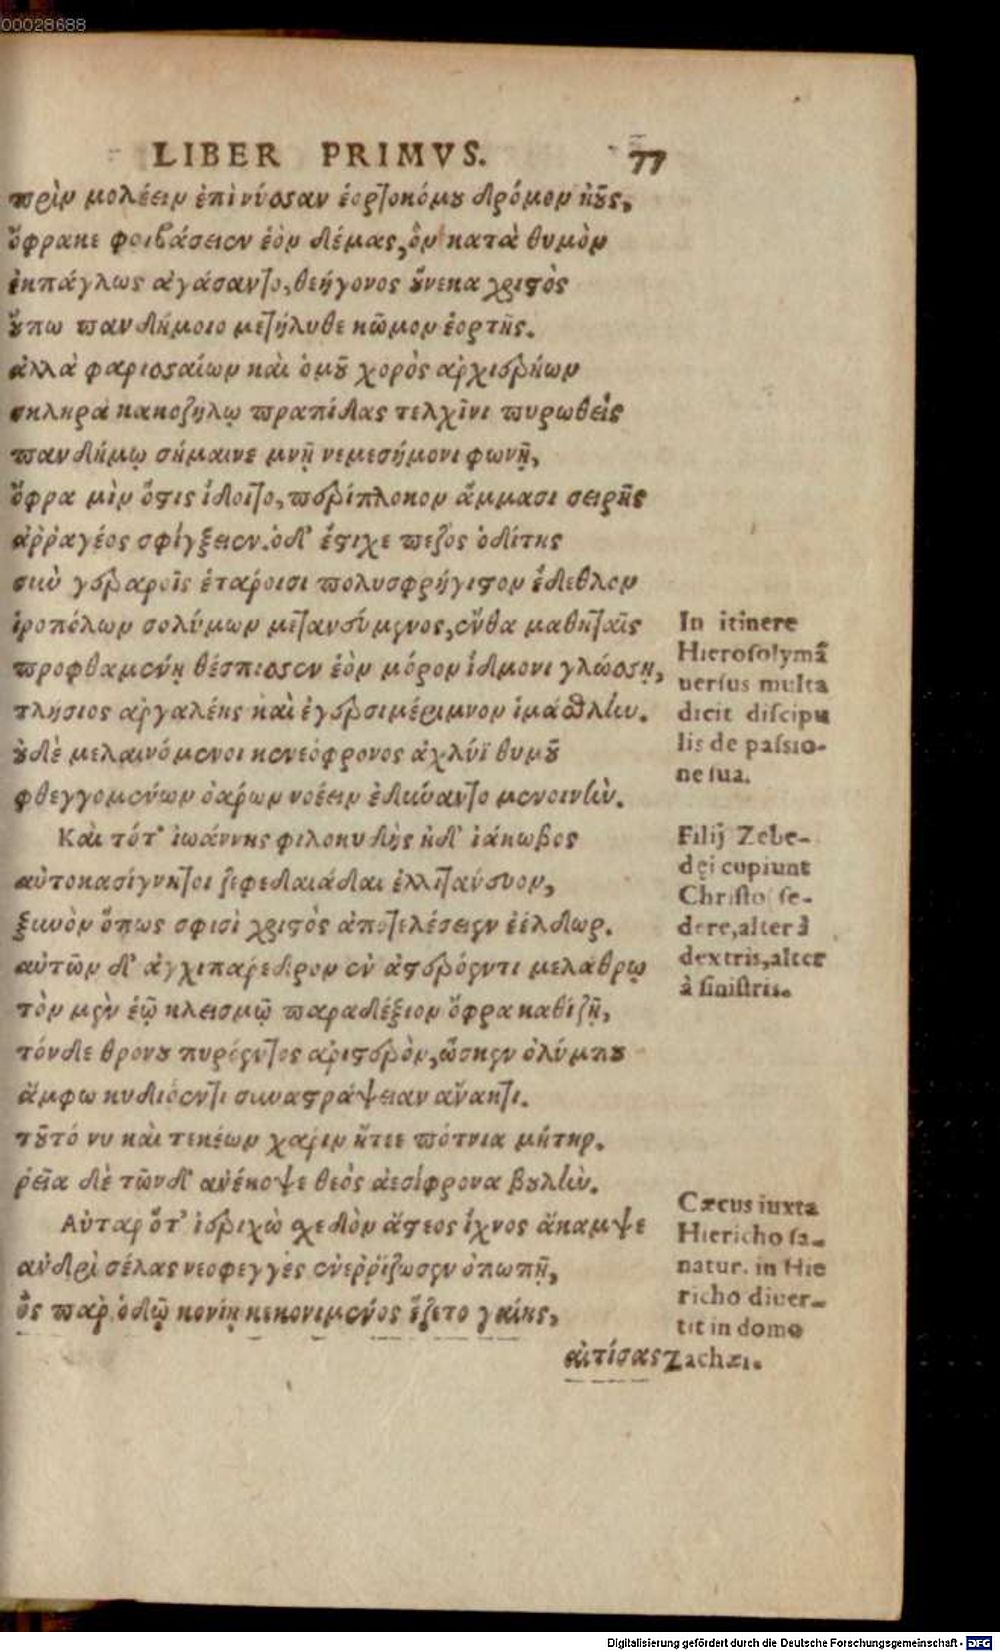 00028688
LIBER PRIMVS. 77
πρὶν μολέειν ἐπὶ νύσσαν ἑορτονόμου δρόμον ἠοῦς,
ὄφρα κε φοιβάσειεν ἑὸν δέμας, ὃν κατὰ θυμὸν
ἐκπάγλως ἀγάσαντο, θεήγονος οὕνεκα χριστὸς
οὔπω πανδήμοιο μετήλυθε κῶμον ἑορτῆς.
ἀλλὰ φαρισσαίων καὶ ὁμοῦ χορὸς ἀρχιερήων
σκληρὰ κακοζήλῳ πραπίδας τελχῖνι πυρωθεὶς
πανδήμῳ σήμαινε μνῇ νεμεσήμονι φωνῇ,
ὄφρα μὶν ὅστις ἴδοιτο, περίπλοκον ἅμμασι σειρῆς
ἀῤῥαγέος σφίγξειεν. ὁδ' ἔστιχε πεζὸς ὁδίτης
σὺν γεραροῖς ἑτάροισι πολυσφρήγιστον ἔδεθλον
ἱροπόλων σολύμων μετανεύμενος, ἔνθα μαθηταῖς
προφθαμένῃ θέσπισσεν ἑὸν μόρον ἴδμονι γλώσσῃ,
τλήσιος ἀργαλέης καὶ ἐγερσιμέριμνον ἱμάσθλην.
οὐδὲ μελαινόμενοι κενεόφρονος ἀχλύϊ θυμοῦ
φθεγγομένων ὀάρων νοέειν ἐδύναντο μενοινήν.
Καὶ τότ' ἰωάννης φιλοκυδὴς ἠδ' ἰάκωβος
αὐτοκασίγνητοι ζεφεδαιάδαι ἐλλιτάνευον,
ξυνὸν ὅπως σφισὶ χριστὸς ἀποτελέσειεν ἐέλδωρ.
αὐτῶν δ' ἀγχιπάρεδρον ἐν ἀστερόεντι μελάθρῳ
τὸν μὲν ἑῷ κλεισμῷ παραδέξιον ὄφρα καθίζῃ,
τόνδε θρόνου πυρόεντος ἀριστερὸν, ὥσκεν ὀλύμπου
ἄμφω κυδιόεντι συναστράψειαν ἄνακτι.
τοῦτό νυ καὶ τεκέων χάριν ᾔτεε πότνια μήτηρ.
ῥεῖα δὲ τῶνδ' ἀνέκοψε θεὸς ἀεσίφρονα βουλήν.
Αὐτὰρ ὅτ' ἱεριχὼ σχεδὸν ἄστεος ἴχνος ἄκαμψε
ἀνδρὶ σέλας νεοφεγγὲς ἐνεῤῥίζωσεν ὀπωπῇ,
ὃς παρ' ὁδῷ κονίῃ κεκονιμένος ἕζετο γαίης,
αἰτίσας
In itinere
Hierosolymã
uersus multa
dicit discipu
lis de passio-
ne sua.
Filij Zebe-
dęi cupiunt
Christo se-
dere, alter à
dextris, alter
à sinistris.
Cæcus iuxta
Hiericho sa-
natur. in Hie
richo diuer-
tit in domo
Zachæi.
Digitalisierung gefördert durch die Deutsche Forschungsgemeinschaft - DFG